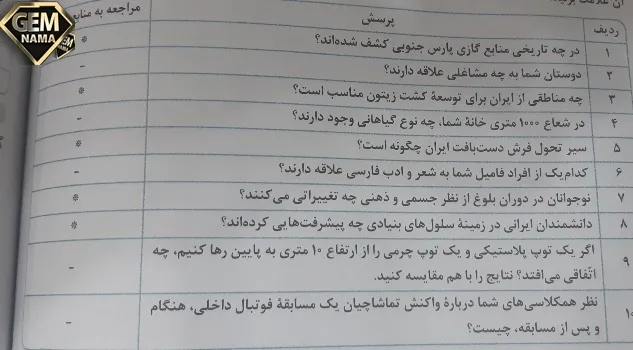 آن علامت
GEM
NAMA
GEM
NAMA
ردیف پرسش مراجعه به منابع
۱ در چه تاریخی منابع گازی پارس جنوبی کشف شده‌اند؟ *
۲ دوستان شما به چه مشاغلی علاقه دارند؟ -
۳ چه مناطقی از ایران برای توسعهٔ کشت زیتون مناسب است؟ *
۴ در شعاع ۱۰۰۰ متری خانهٔ شما، چه نوع گیاهانی وجود دارند؟ -
۵ سیر تحول فرش دست‌بافت ایران چگونه است؟ *
۶ کدام‌یک از افراد فامیل شما به شعر و ادب فارسی علاقه دارند؟ -
۷ نوجوانان در دوران بلوغ از نظر جسمی و ذهنی چه تغییراتی می‌کنند؟ *
۸ دانشمندان ایرانی در زمینهٔ سلول‌های بنیادی چه پیشرفت‌هایی کرده‌اند؟ *
اگر یک توپ پلاستیکی و یک توپ چرمی را از ارتفاع ۱۰ متری به پایین رها کنیم، چه
۹ اتّفاقی می‌افتد؟ نتایج را با هم مقایسه کنید. -
نظر همکلاسی‌های شما دربارهٔ واکنش تماشاچیان یک مسابقهٔ فوتبال داخلی، هنگام
۱۰ و پس از مسابقه، چیست؟ -